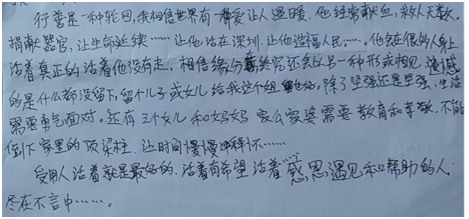 行善是一种轮回,我相信世界有一种爱让人温暖。他经常献血,救人无数,
捐献器官,让生命延续……让他活在深圳.让他造福人民……,他会在很多人身上
活着真正的活着他没有走,相信缘分 终究还会以另一种形式相见 遗憾
的是什么都没留下,留个儿子或女儿给我这个姐 ,除了坚强还是坚强,生活
需要勇气面对,还有三个女儿和妈妈 家公家婆需要教育和孝敬,不能
倒下家里的顶梁柱.让时间慢慢冲释怀……
爱的人活着就是最好的.活着有希望活着……感恩遇见和帮助的人.
尽在不言中……。